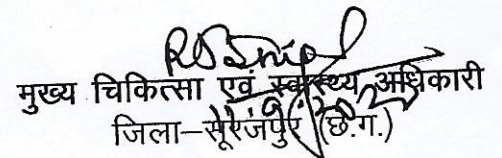 मुख्य चिकित्सा एवं स्वास्थ्य अधिकारी
जिला–सूरजपुर (छ.ग.)